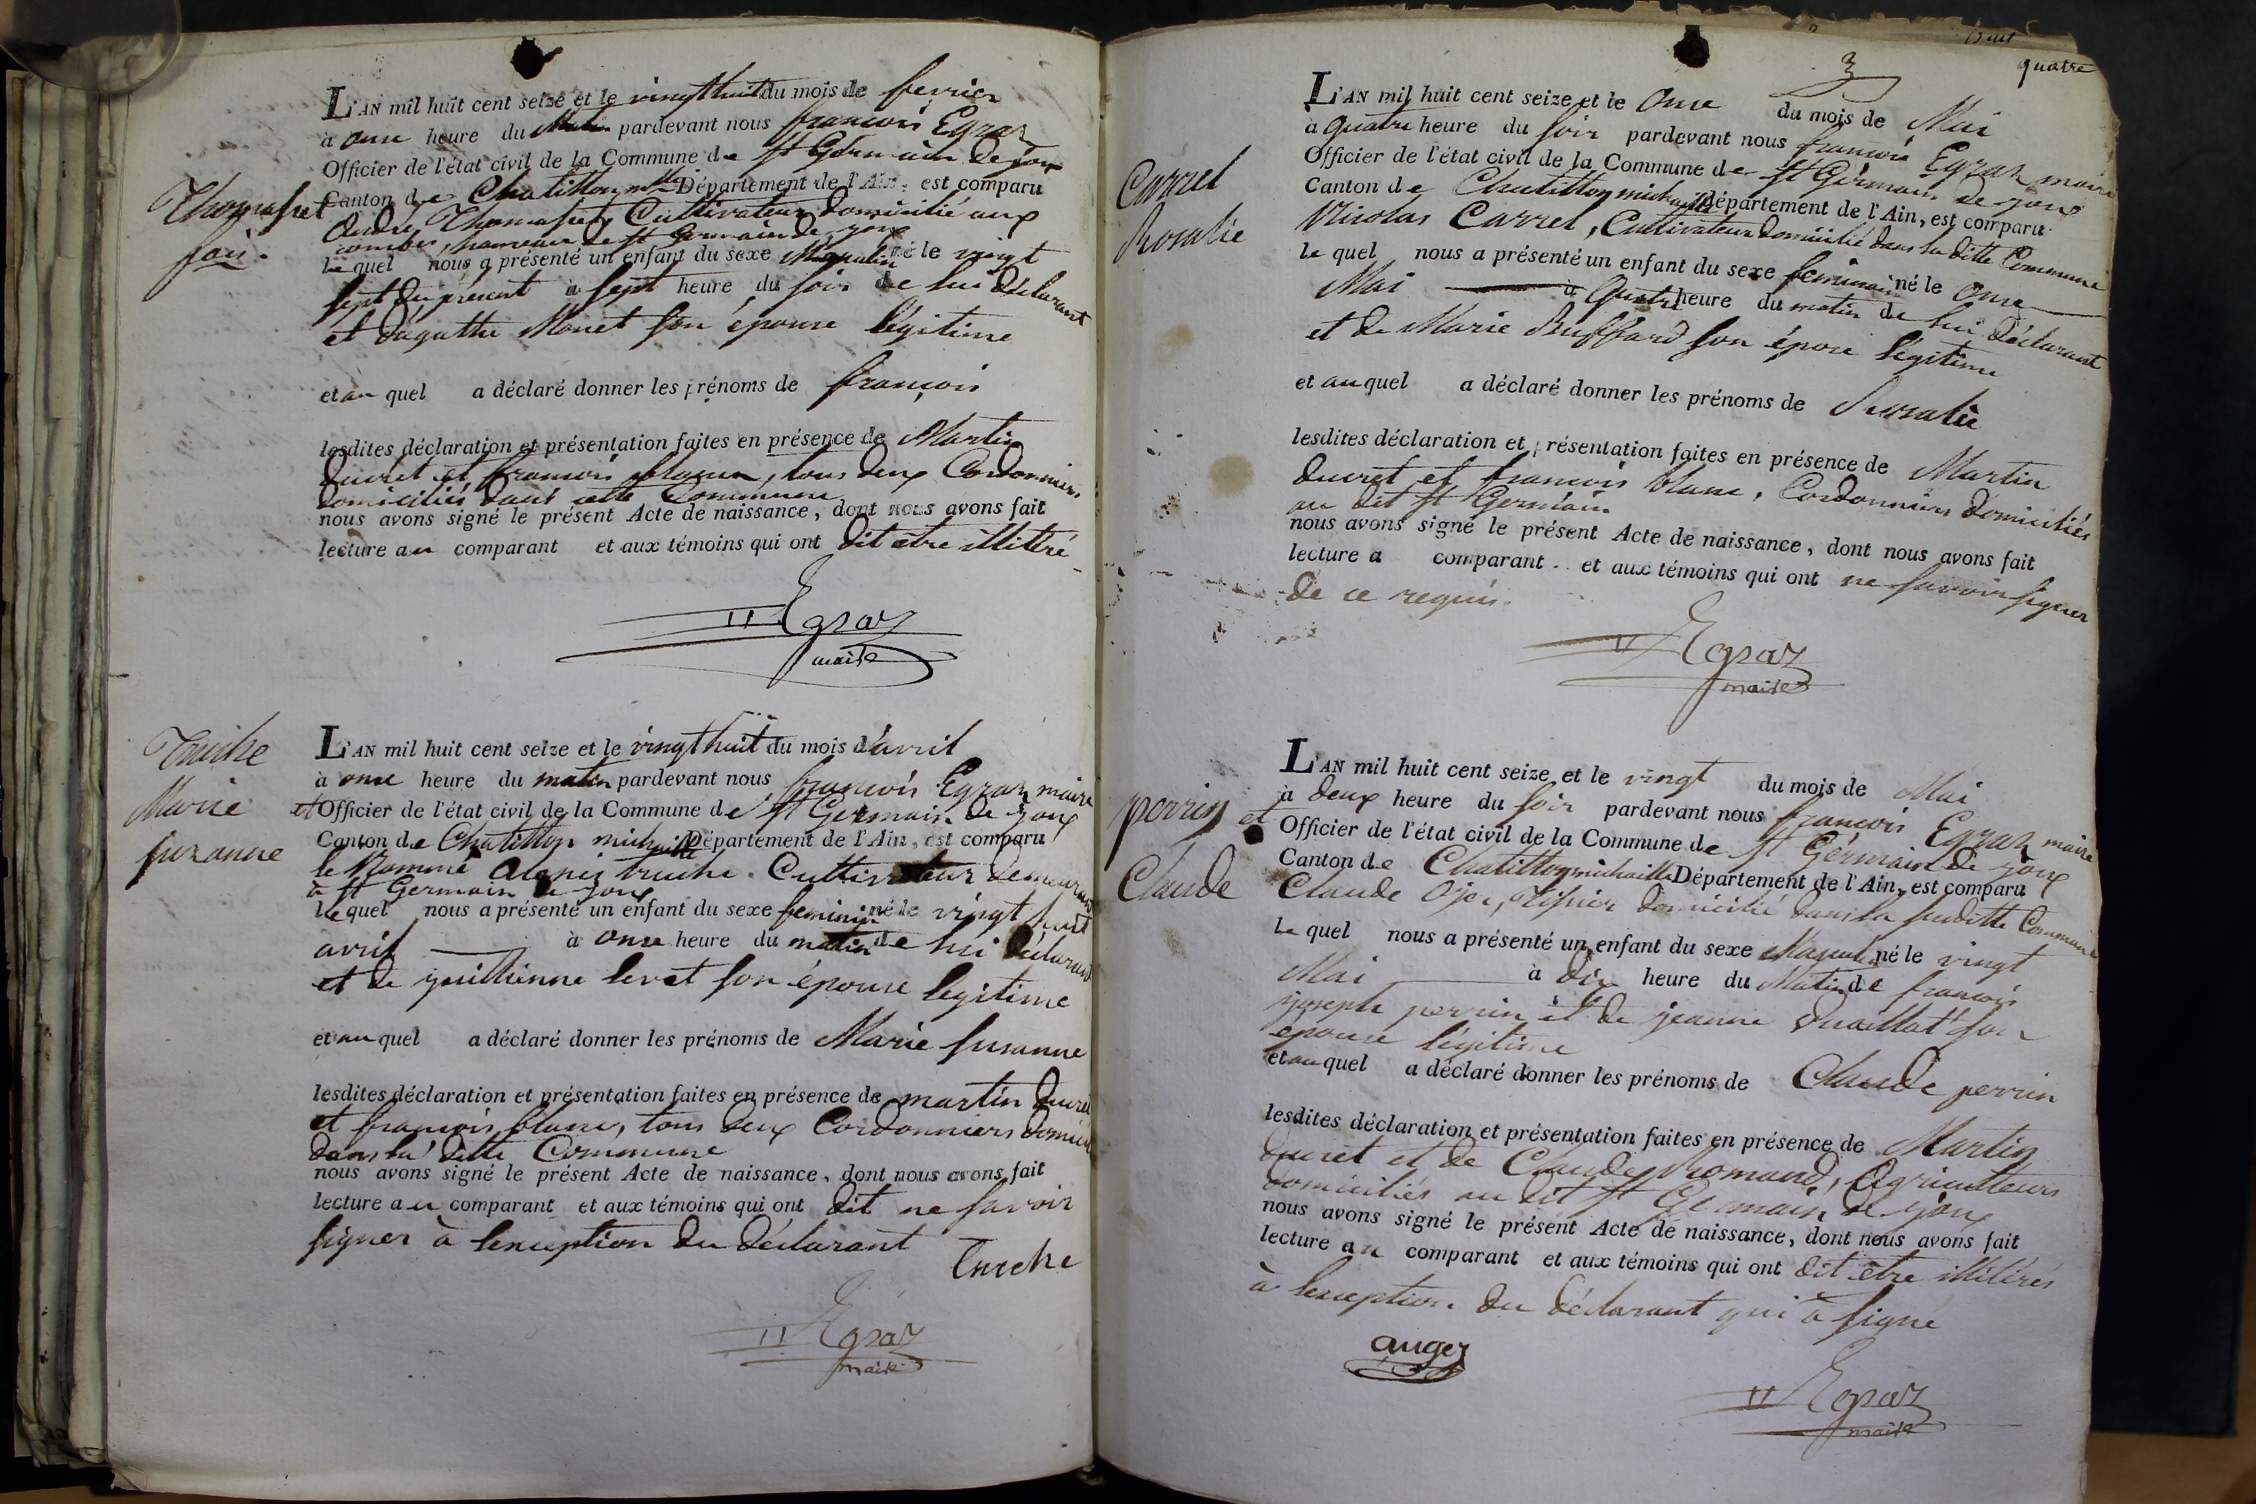 Thomasset
fois.
L'AN mil huit cent seize et le vingt huit du mois de fevrier
à onze heure du Matin pardevant nous francois Egraz
Officier de l'état civil de la Commune de St Germain de joux
Canton de Chatillon mlle Département de l'Ain, est comparu
André Thomasset, Cultivateur domicilié aux
combes, hameau de St Germain de joux
le quel nous a présenté un enfant du sexe Masculin né le vingt
sept du présent à sept heure du soir de lui déclarant
et d'agathe Monet son épouse légitime
et au quel a déclaré donner les prénoms de francois
lesdites déclaration et présentation faites en présence de Martin
ducret et francois blanc, tous deux Cordonniers
domiciliés dans cette Commune
nous avons signé le présent Acte de naissance, dont nous avons fait
lecture au comparant et aux témoins qui ont dit etre illitéré
Egraz
maire
Truche
Marie
suzanne
L'AN mil huit cent seize et le vingt huit du mois d'avril
à onze heure du matin pardevant nous francois Egraz maire
et Officier de l'état civil de la Commune de St Germain de joux
Canton de Chatillon michaille Département de l'Ain, est comparu
le Nommé Alexis truche Cultivateur demeurant
à St Germain de joux
le quel nous a présenté un enfant du sexe feminin né le vingt huit
avril à onze heure du matin de lui déclarant
et de guillienne levet son épouse legitime
et au quel a déclaré donner les prénoms de Marie susanne
lesdites déclaration et présentation faites en présence de martin ducret
et francois blanc, tous deux Cordonniers domicil
dans la ditte Commune
nous avons signé le présent Acte de naissance, dont nous avons fait
lecture au comparant et aux témoins qui ont dit ne savoir
signer à lexception du déclarant
Truche
Egraz
maire
3
quatre
Carrel
Rosalie
L'AN mil huit cent seize et le onze du mois de Mai
à quatre heure du soir pardevant nous francois Egraz maire
Officier de l'état civil de la Commune de St Germain de joux
Canton de Chatillon michaille Département de l'Ain, est comparu
Nicolas Carrel, Cultivateur domicilié dans la ditte Commune
le quel nous a présenté un enfant du sexe feminin né le onze
Mai à quatre heure du matin de lui déclarant
et de Marie Buffard son épose légitime
et au quel a déclaré donner les prénoms de Rosalie
lesdites déclaration et présentation faites en présence de Martin
ducret et francois blanc, Cordonniers domiciliés
au dit St Germain
nous avons signé le présent Acte de naissance, dont nous avons fait
lecture a comparant et aux témoins qui ont ne savoir signer
de ce requis.
Egraz
maire
perrin
Claude
L'AN mil huit cent seize et le vingt du mois de Mai
à deux heure du soir pardevant nous francois Egraz maire
et Officier de l'état civil de la Commune de St Germain de joux
Canton de Chatillon michaille Département de l'Ain, est comparu
Claude Ojer, Tissier domicilié dans la susditte Commune
le quel nous a présenté un enfant du sexe Masculin né le vingt
Mai à dix heure du Matin de francois
joseph perrin et de jeanne son
epouse légitime
et au quel a déclaré donner les prénoms de Claude perrin
lesdites déclaration et présentation faites en présence de Martin
ducret et de Claude Romand, Agriculteurs
domiciliés au dit St Germain de joux
nous avons signé le présent Acte de naissance, dont nous avons fait
lecture au comparant et aux témoins qui ont dit être illitérés
à lexception du déclarant qui à signé
auger
Egraz
maire